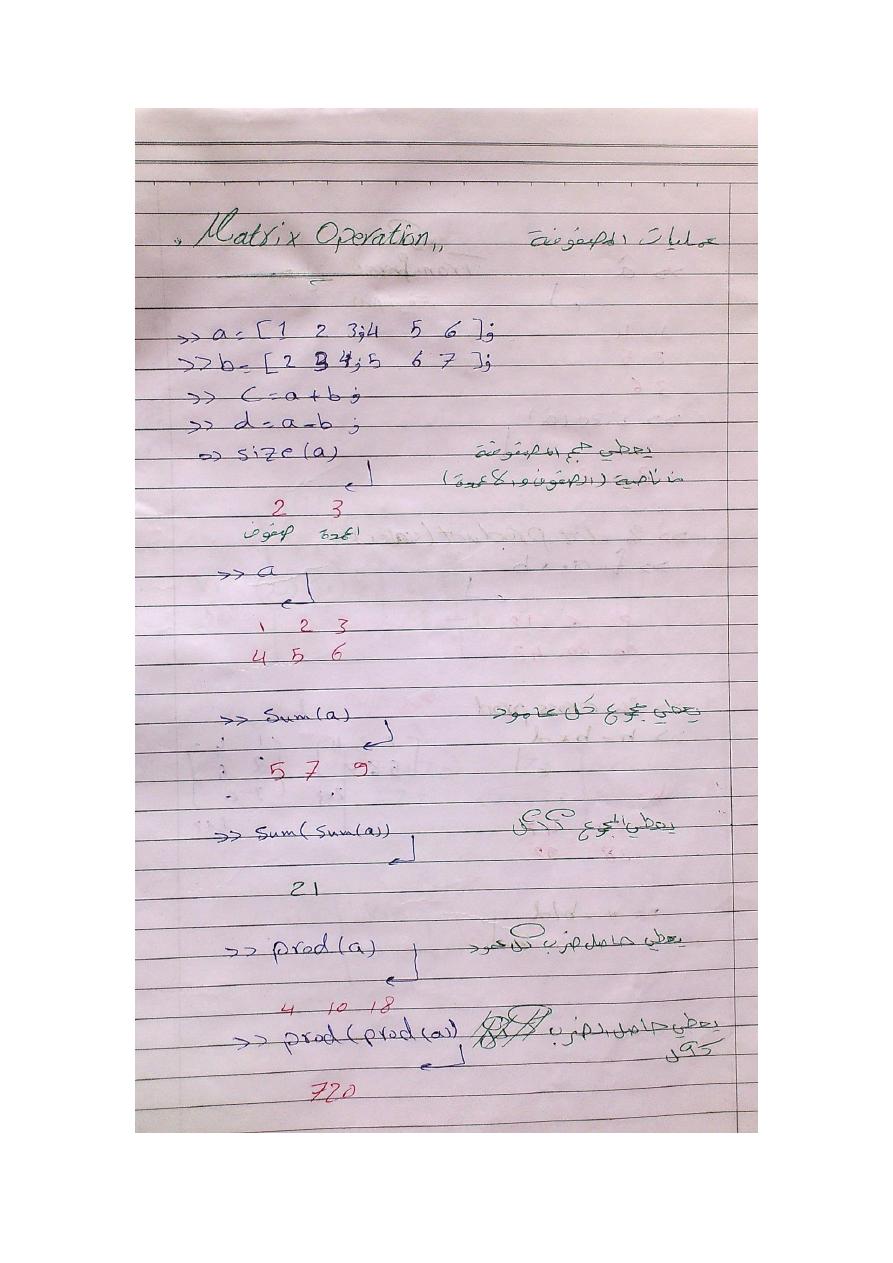 Matrix Operation,, عمليات المصفوفة
>> a = [1 2 3;4 5 6];
>> b = [2 3 4;5 6 7];
>> C = a + b ;
>> d = a - b ;
=> size(a) يعطي حجم المصفوفة
من ناحية (الصفوف والأعمدة)
2 3
صفوف اعمدة
>> a
1 2 3
4 5 6
>> Sum(a) يعطي مجموع كل عامود
5 7 9
>> Sum(Sum(a)) يعطي المجموع ككل
21
>> prod(a) يعطي حاصل ضرب كل عمود
4 10 18
>> prod(prod(a)) يعطي حاصل الضرب
ككل
720